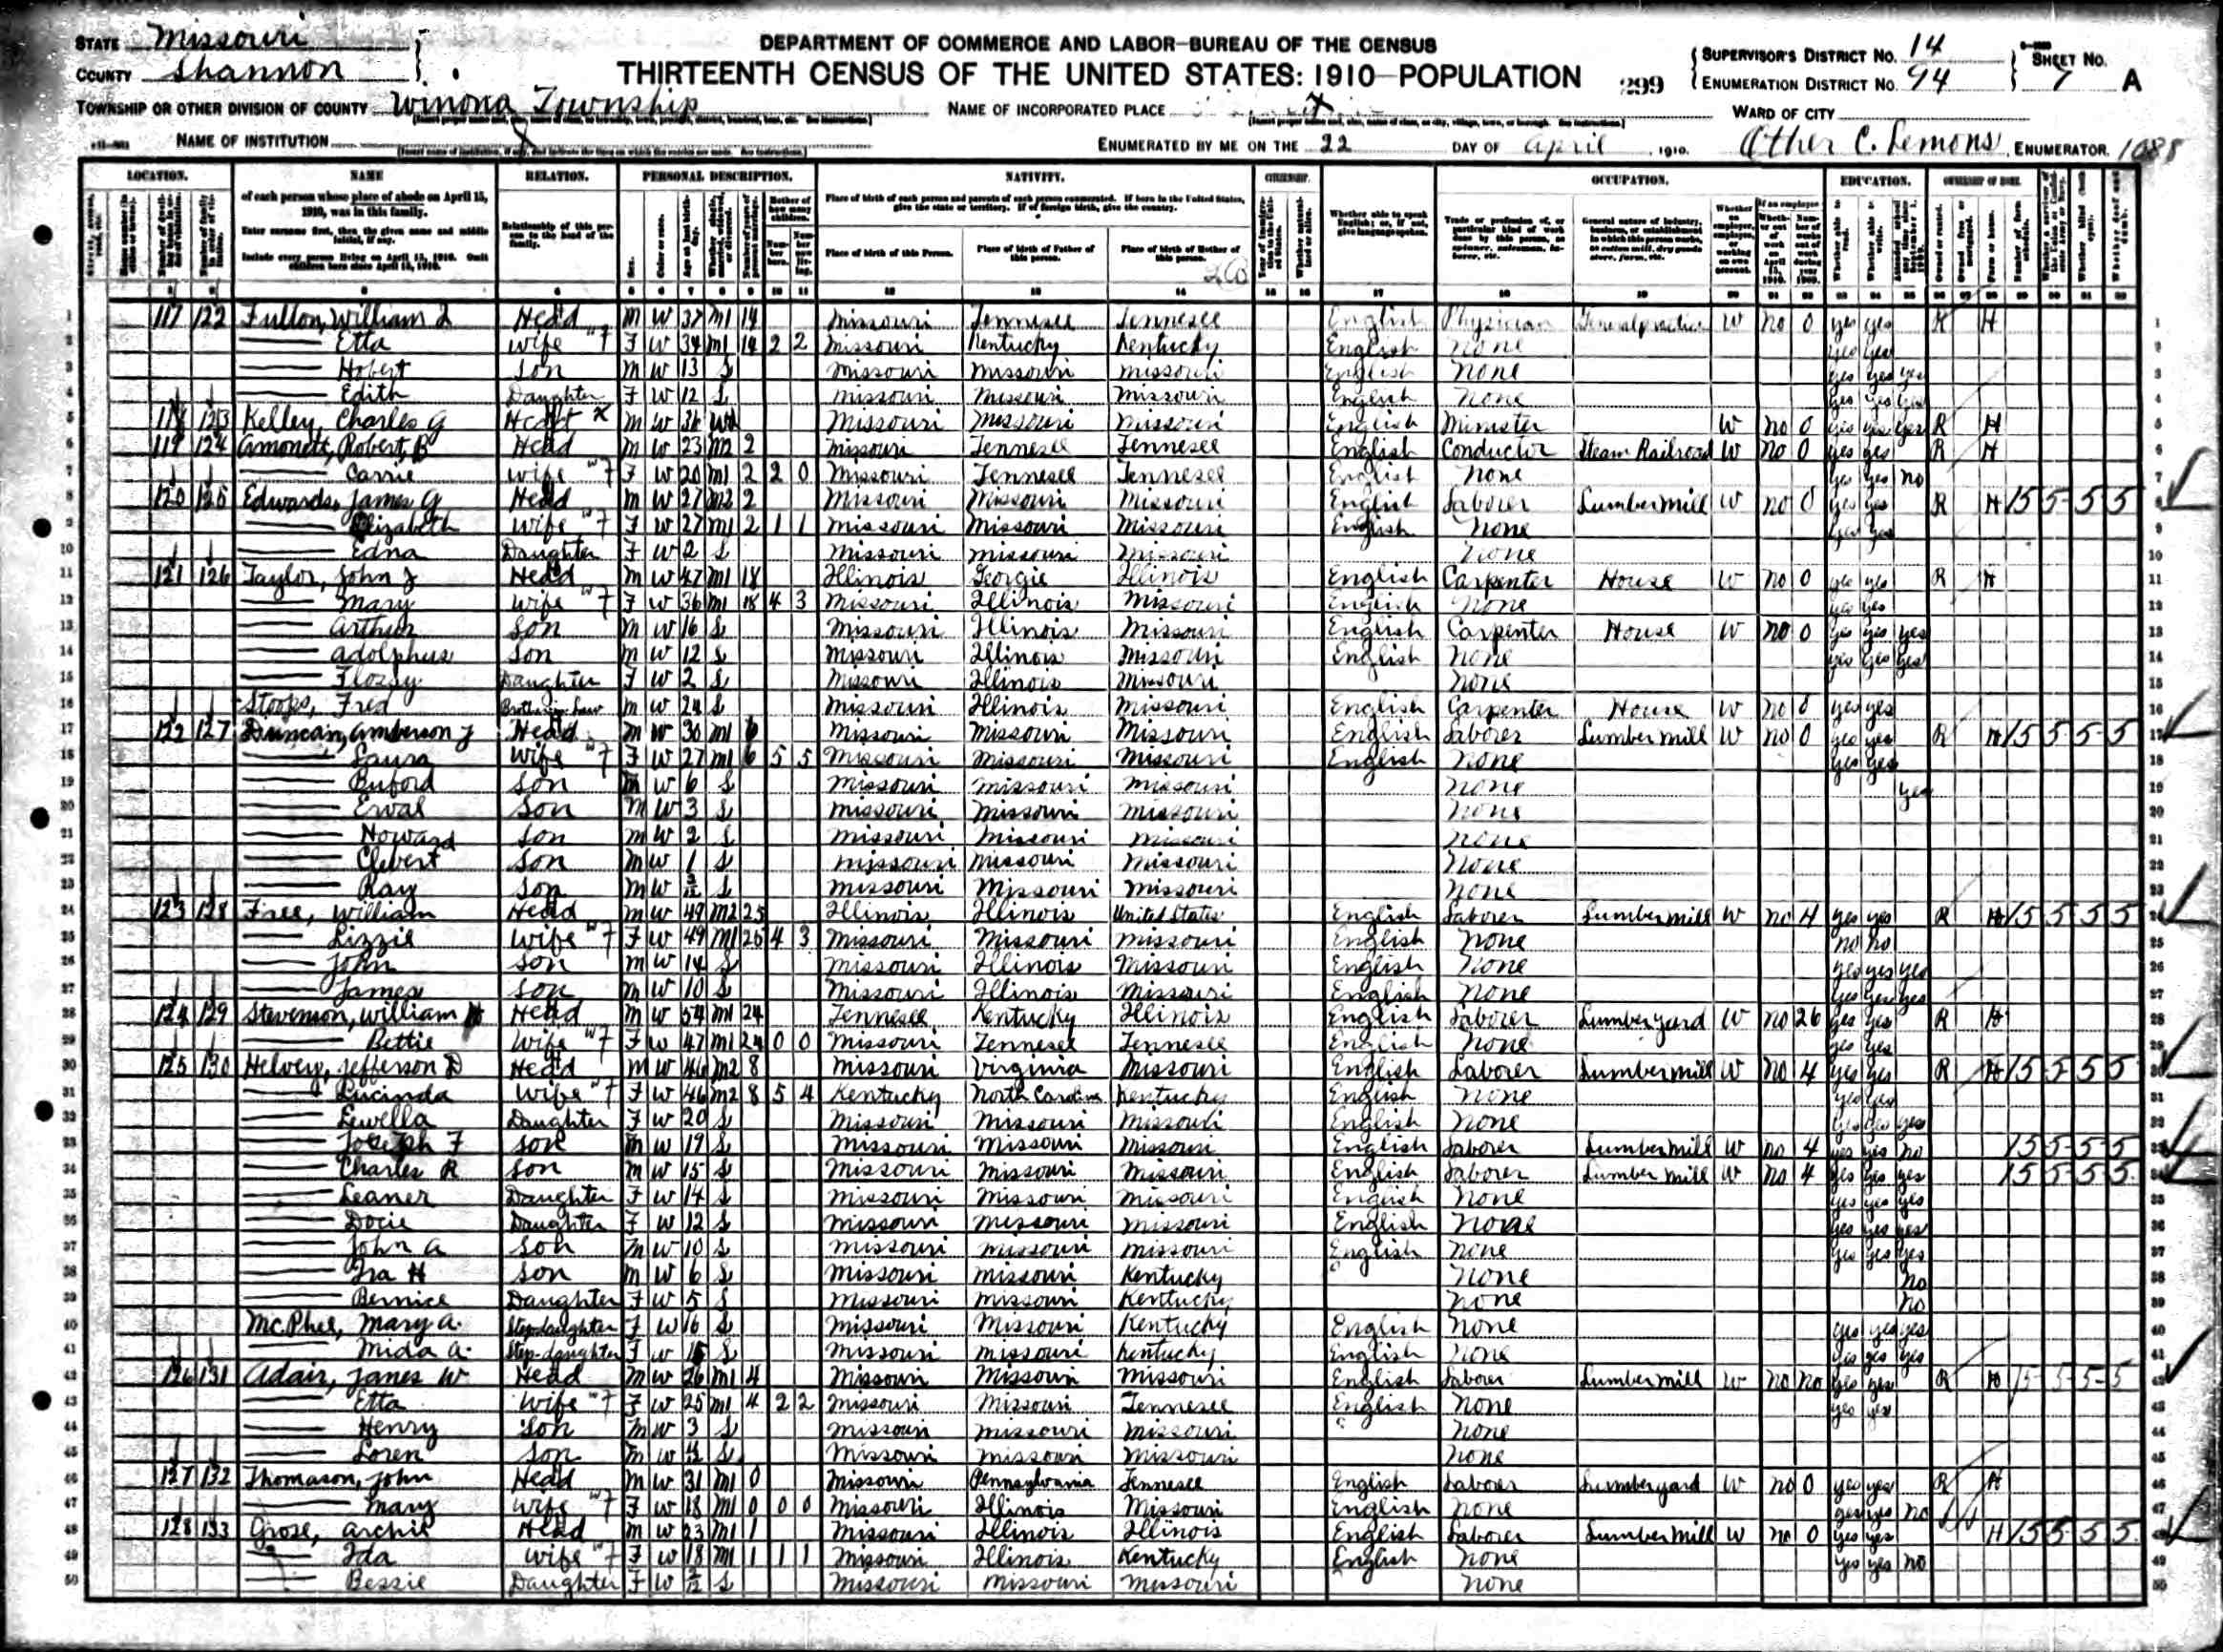 STATE Missouri
COUNTY Shannon
DEPARTMENT OF COMMERCE AND LABOR—BUREAU OF THE CENSUS
THIRTEENTH CENSUS OF THE UNITED STATES: 1910—POPULATION
299
SUPERVISOR'S DISTRICT No. 14
ENUMERATION DISTRICT No. 94
SHEET No. 7 A
TOWNSHIP OR OTHER DIVISION OF COUNTY Winona Township
NAME OF INCORPORATED PLACE X
WARD OF CITY
NAME OF INSTITUTION X
ENUMERATED BY ME ON THE 22 DAY OF April, 1910.
Other C. Lemons, ENUMERATOR.
LOCATION. NAME RELATION. PERSONAL DESCRIPTION. NATIVITY. CITIZENSHIP. OCCUPATION. EDUCATION. OWNERSHIP OF HOME.
of each person whose place of abode on April 15, 1910, was in this family.
Enter surname first, then the given name and middle initial, if any.
Include every person living on April 15, 1910. Omit children born since April 15, 1910.
Relationship of this person to the head of the family.
Place of birth of this Person. Place of birth of Father of this person. Place of birth of Mother of this person.
1 117 122 Fulton, William Head M W 37 M1 14 Missouri Tennesee Tennesee English Physician General practice W no 0 yes yes H
2 Etta Wife F W 34 M1 14 2 2 Missouri Kentucky Kentucky English None yes yes
3 Hobert Son M W 13 S Missouri Missouri Missouri English None yes yes yes
4 Edith Daughter F W 12 S Missouri Missouri Missouri English None yes yes yes
5 118 123 Kelley, Charles G Head X M W 36 Wd Missouri Missouri Missouri English Minister W no 0 yes yes yes R H
6 119 124 Amonett, Robert B Head M W 23 M2 2 Missouri Tennesee Tennesee English Conductor Steam Railroad W no 0 yes yes R H
7 Carrie Wife F W 20 M1 2 2 0 Missouri Tennesee Tennesee English None yes yes no
8 120 125 Edwards, James G Head M W 27 M2 2 Missouri Missouri Missouri English Laborer Lumber Mill W no 0 yes yes R H 15 5-5 5
9 Elizabeth Wife F W 27 M1 2 1 1 Missouri Missouri Missouri English None yes yes
10 Edna Daughter F W 2 S Missouri Missouri Missouri None
11 121 126 Taylor, John J Head M W 47 M1 18 Illinois Georgie Illinois English Carpenter House W no 0 yes yes R H
12 Mary Wife F W 36 M1 18 4 3 Missouri Illinois Missouri English None yes yes
13 Arthur Son M W 16 S Missouri Illinois Missouri English Carpenter House W no 0 yes yes yes
14 Adolphus Son M W 12 S Missouri Illinois Missouri English None yes yes yes
15 Flossy Daughter F W 2 S Missouri Illinois Missouri None
16 Stoops, Fred Brother in Law M W 24 S Missouri Illinois Missouri English Carpenter House W no 0 yes yes
17 122 127 Duncan, Amberson J Head M W 30 M1 6 Missouri Missouri Missouri English Laborer Lumber Mill W no 0 yes yes R H 15 5 5-5
18 Laura Wife F W 27 M1 6 5 5 Missouri Missouri Missouri English None yes yes
19 Buford Son M W 6 S Missouri Missouri Missouri None yes
20 Erval Son M W 3 S Missouri Missouri Missouri None
21 Howard Son M W 2 S Missouri Missouri Missouri None
22 Clebert Son M W 1 S Missouri Missouri Missouri None
23 Ray Son M W S Missouri Missouri Missouri None
24 123 128 Free, William Head M W 49 M2 25 Illinois Illinois United States English Laborer Lumber Mill W no 4 yes yes R H 15 5 5 5
25 Lizzie Wife F W 49 M1 25 4 3 Missouri Missouri Missouri English None no no
26 John Son M W 14 S Missouri Illinois Missouri English None yes yes yes
27 James Son M W 10 S Missouri Illinois Missouri English None yes yes yes
28 124 129 Stevenson, William Head M W 54 M1 24 Tennesee Kentucky Illinois English Laborer Lumberyard W no 26 yes yes R H
29 Bettie Wife F W 47 M1 24 0 0 Missouri Tennesee Tennesee English None yes yes
30 125 130 Helvey, Jefferson D Head M W 46 M2 8 Missouri Virginia Missouri English Laborer Lumber Mill W no 4 yes yes R H 15 5 5 5
31 Lucinda Wife F W 46 M2 8 5 4 Kentucky North Carolina Kentucky English None yes yes
32 Lewella Daughter F W 20 S Missouri Missouri Missouri English None yes yes yes
33 Joseph F Son M W 17 S Missouri Missouri Missouri English Laborer Lumber Mill W no 4 yes yes no 15 5 5 5
34 Charles R Son M W 15 S Missouri Missouri Missouri English Laborer Lumber Mill W no 4 yes yes yes 15 5 5 5
35 Leaner Daughter F W 14 S Missouri Missouri Missouri English None yes yes yes
36 Docie Daughter F W 12 S Missouri Missouri Missouri English None yes yes yes
37 John A Son M W 10 S Missouri Missouri Missouri English None yes yes yes
38 Ira H Son M W 6 S Missouri Missouri Kentucky None no
39 Bernice Daughter F W 5 S Missouri Missouri Kentucky None no
40 McPhee, Mary A. Step-daughter F W 16 S Missouri Missouri Kentucky English None yes yes yes
41 Mida A. Step-daughter F W S Missouri Missouri Kentucky English None yes yes yes
42 126 131 Adair, James W Head M W 26 M1 4 Missouri Missouri Missouri English Laborer Lumber Mill W no no yes yes R H 15 5 5 5
43 Etta Wife F W 25 M1 4 2 2 Missouri Missouri Tennesee English None yes yes
44 Henry Son M W 3 S Missouri Missouri Missouri None
45 Loren Son M W S Missouri Missouri Missouri None
46 127 132 Thomason, John Head M W 31 M1 0 Missouri Pennsylvania Tennesee English Laborer Lumberyard W no 0 yes yes R H
47 Mary Wife F W 18 M1 0 0 0 Missouri Illinois Missouri English None yes yes no
48 128 133 Grose, Archie Head M W 23 M1 1 Missouri Illinois Illinois English Laborer Lumber Mill W no 0 yes yes H 15 5 5 5
49 Ida Wife F W 18 M1 1 1 1 Missouri Illinois Kentucky English None yes yes no
50 Bessie Daughter F W S Missouri Missouri Missouri None